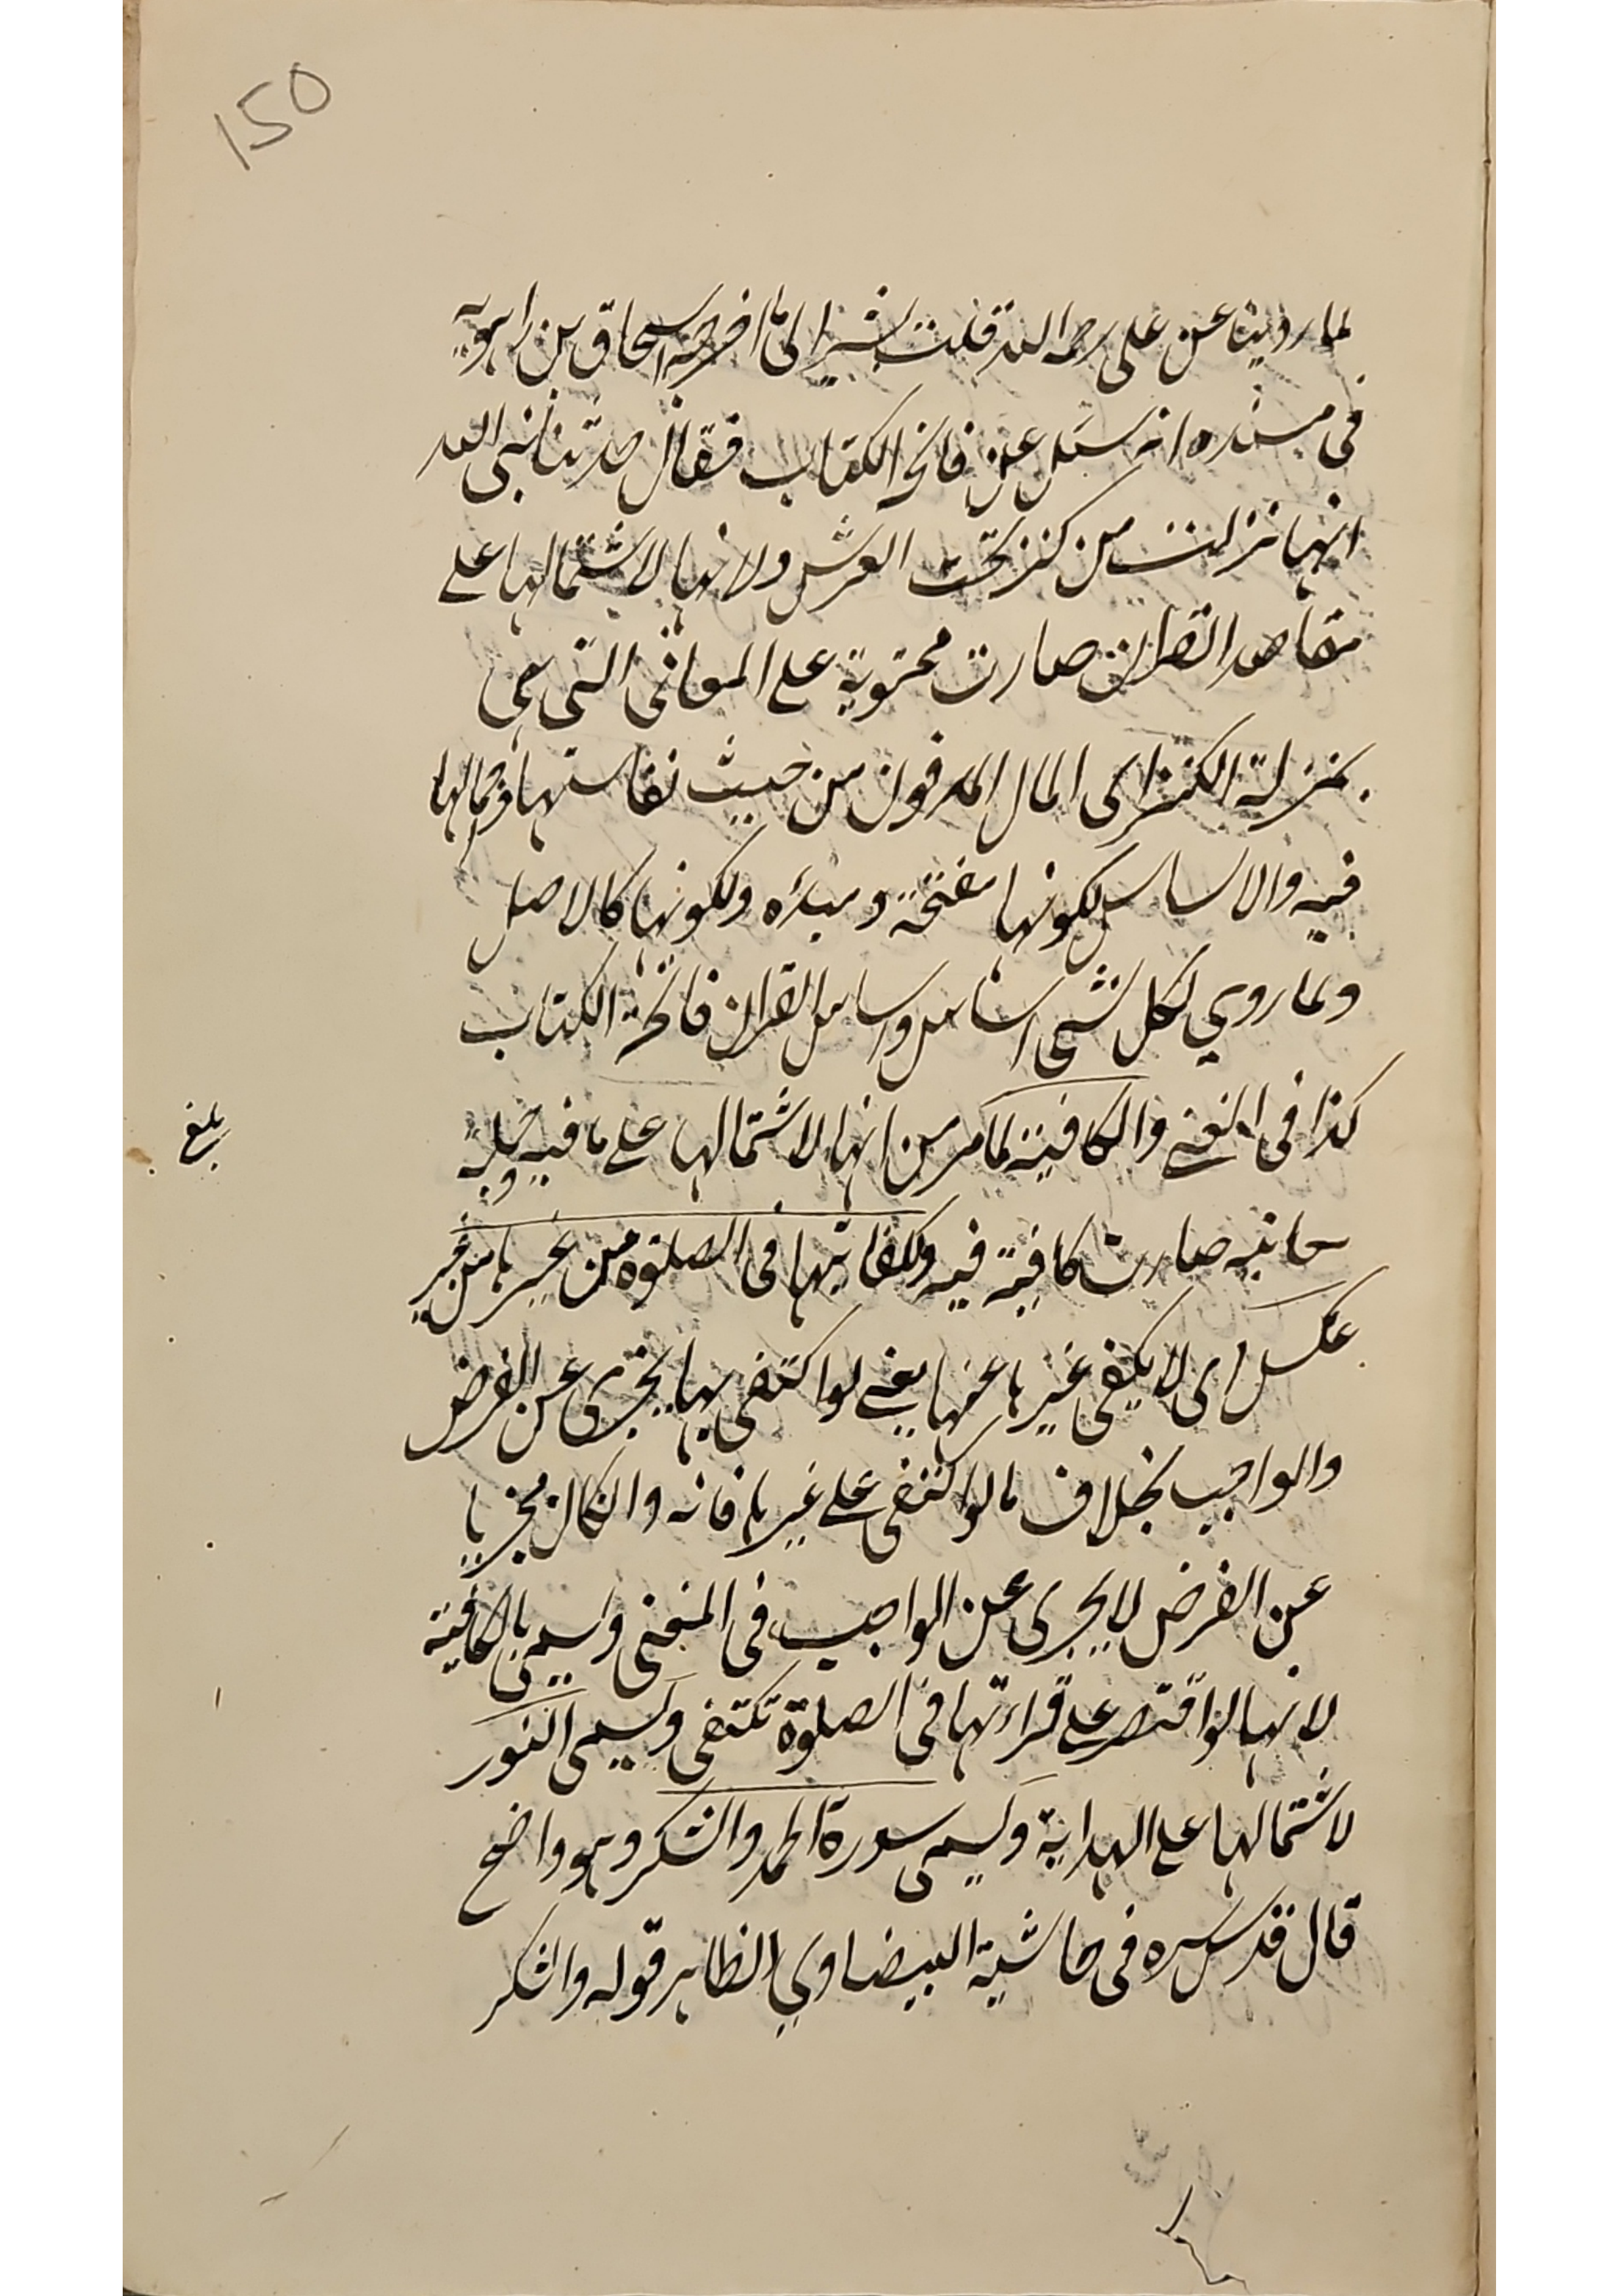 150
لما روينا عن على رحمه الله قلت يشير الى ما اخرجه اسحاق بن راهويه
فى مسنده انه سئل عن فاتحة الكتاب فقال حدثنا نبى الله
انها نزلت من كنز تحت العرش ولانها لاشتمالها على
مقاصد القران صارت محتوية على المعانى التى هى
بمنزلة الكنز اى المال المدفون من حيث نفاستها وكمالها
فيه والاساس لكونها مفتحة ومبدئه ولكونها كالاصل
ولما روي لكل شى اساس واساس القران فاتحة الكتاب
كذا فى والكافية لما مر من انها لاشتمالها على ما فيه وجملة
معانيه صارت كافية فيه ولكفايتها فى الصلوة من غيرها من غير
عكس اى لا يكفى غيرها عنها يعنى لو اكتفى بها يجزى عن الفرض
والواجب بخلاف ما لو اكتفى على غيرها فانه وان كان مجزيا
عن الفرض لا يجزى عن الواجب فى المنجى ويسمى بالكافية
لانها لو اقتصر على قراءتها فى الصلوة تكتفى ويسمى النور
لاشتمالها على الهداية ويسمى سورة الحمد والشكر وهو واضح
قال قدس سره فى حاشية البيضاوي الظاهر قوله والشكر
بلغ